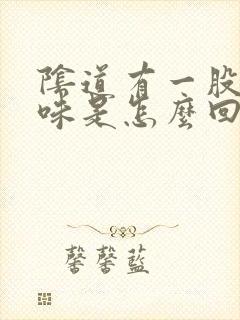 陰道有一股
味是怎麼回
馨馨藍